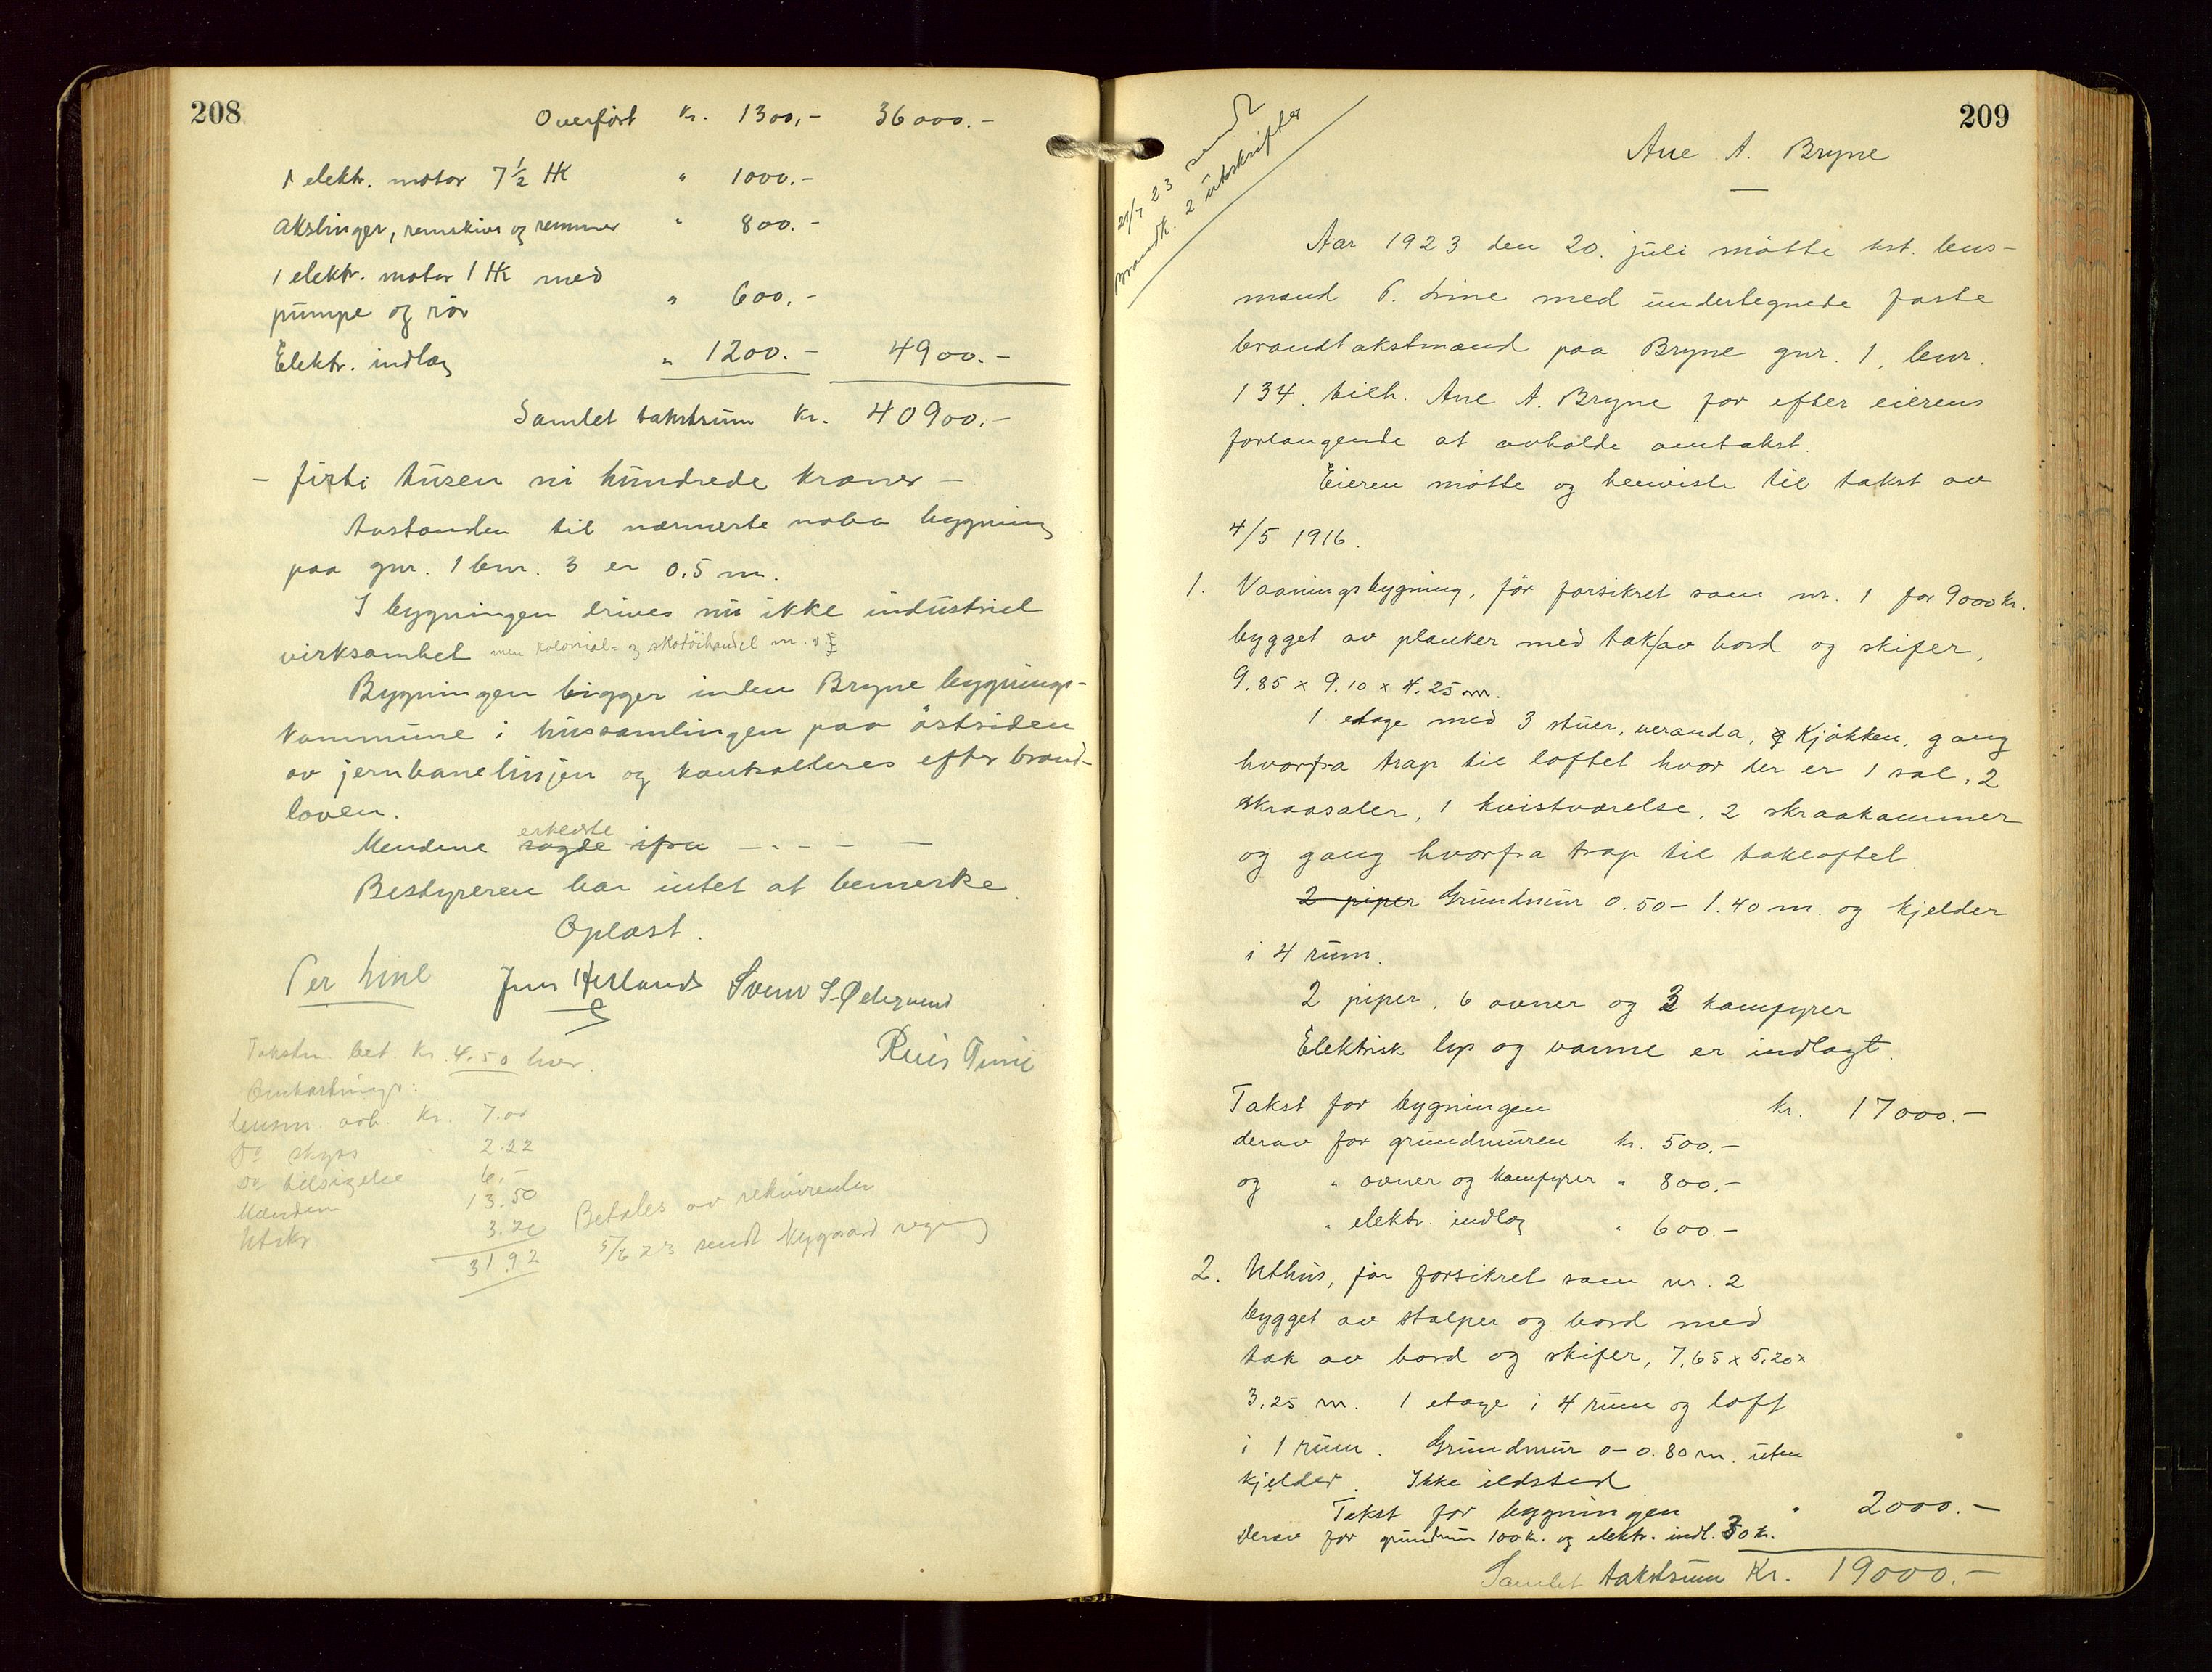 208
Overført Kr. 1300,- 36000.-
1 elektr. motor 7½ HK " 1000.-
Akslinger, remskiver og remmer " 800.-
1 elektr. motor 1 HK med
pumpe og rør " 600.-
Elektr. indlæg " 1200.- 4900.-
Samlet takstsum Kr. 40900.-
- firti tusen ni hundrede kroner -
Avstanden til nærmeste nabo bygning
paa gnr. 1 bnr. 3 er 0,5 m.
I bygningen drives nu ikke industriel
virksamhet men kolonial- og skotøihandel m. v.
Bygningen ligger inden Bryne bygnings-
kommune i hussamlingen paa østsiden
av jernbanelinjen og kontrolleres efter brand-
loven.
Mendene erklærte sagde ifra - - - - -
Bestyreren har intet at bemerke.
Oplæst.
Per Line Jens Herland Svend S.
Takstm. bet. Kr. 4.50 hver.
Omkostninger:
Lensm. arb. Kr. 7.00
Do skyss 2.22
Do tilsigelse 6,-
Mændene 13.50
Utskr 3.20
31.92
Betales av rekvirenten
5/6 23 sendt Nygaard regning
209
21/7 23 sendt
Brandk. 2 utskrifter
Ane A. Bryne
Aar 1923 den 20. juli møtte kst. lens-
mand P. Line med undertegnede faste
brandtakstmænd paa Bryne gnr. 1, bnr.
134. tilh. Ane A. Bryne for efter eierens
forlangende at avholde omtakst.
Eieren møtte og henviste til takst av
4/5 1916.
1. Vaaningsbygning, før forsikret som nr. 1 for 9000 kr.
bygget av planker med tak av bord og skifer,
9.85 x 9.10 x 4.25 m.
1 etage med 3 stuer, veranda, Kjøkken, gang
hvorfra trap til loftet hvor der er 1 sal, 2
skraasaler, 1 kvistværelse, 2 skraakammer
og gang hvorfra trap til takloftet
2 piper Grundmur 0.50 - 1.40 m. og kjelder
i 4 rum.
2 piper, 6 ovner og 3 komfyrer
Elektrisk lys og varme er indlagt.
Takst for bygningen kr. 17000.-
derav for grundmuren kr. 500.-
og " ovner og komfyrer " 800.-
" elektr. indlæg " 600.-
2. Uthus, før forsikret som nr. 2
bygget av stolper og bord med
tak av bord og skifer, 7.65 x 5.20 x
3.25 m. 1 etage i 4 rum og loft
i 1 rum. Grundmur 0-0.80 m. uten
kjelder. Ikke ildsted
Takst for bygningen " 2000.-
Derav for grundmur 100 kr. og elektr. indl. 30 kr.
Samlet takstsum Kr. 19000.-